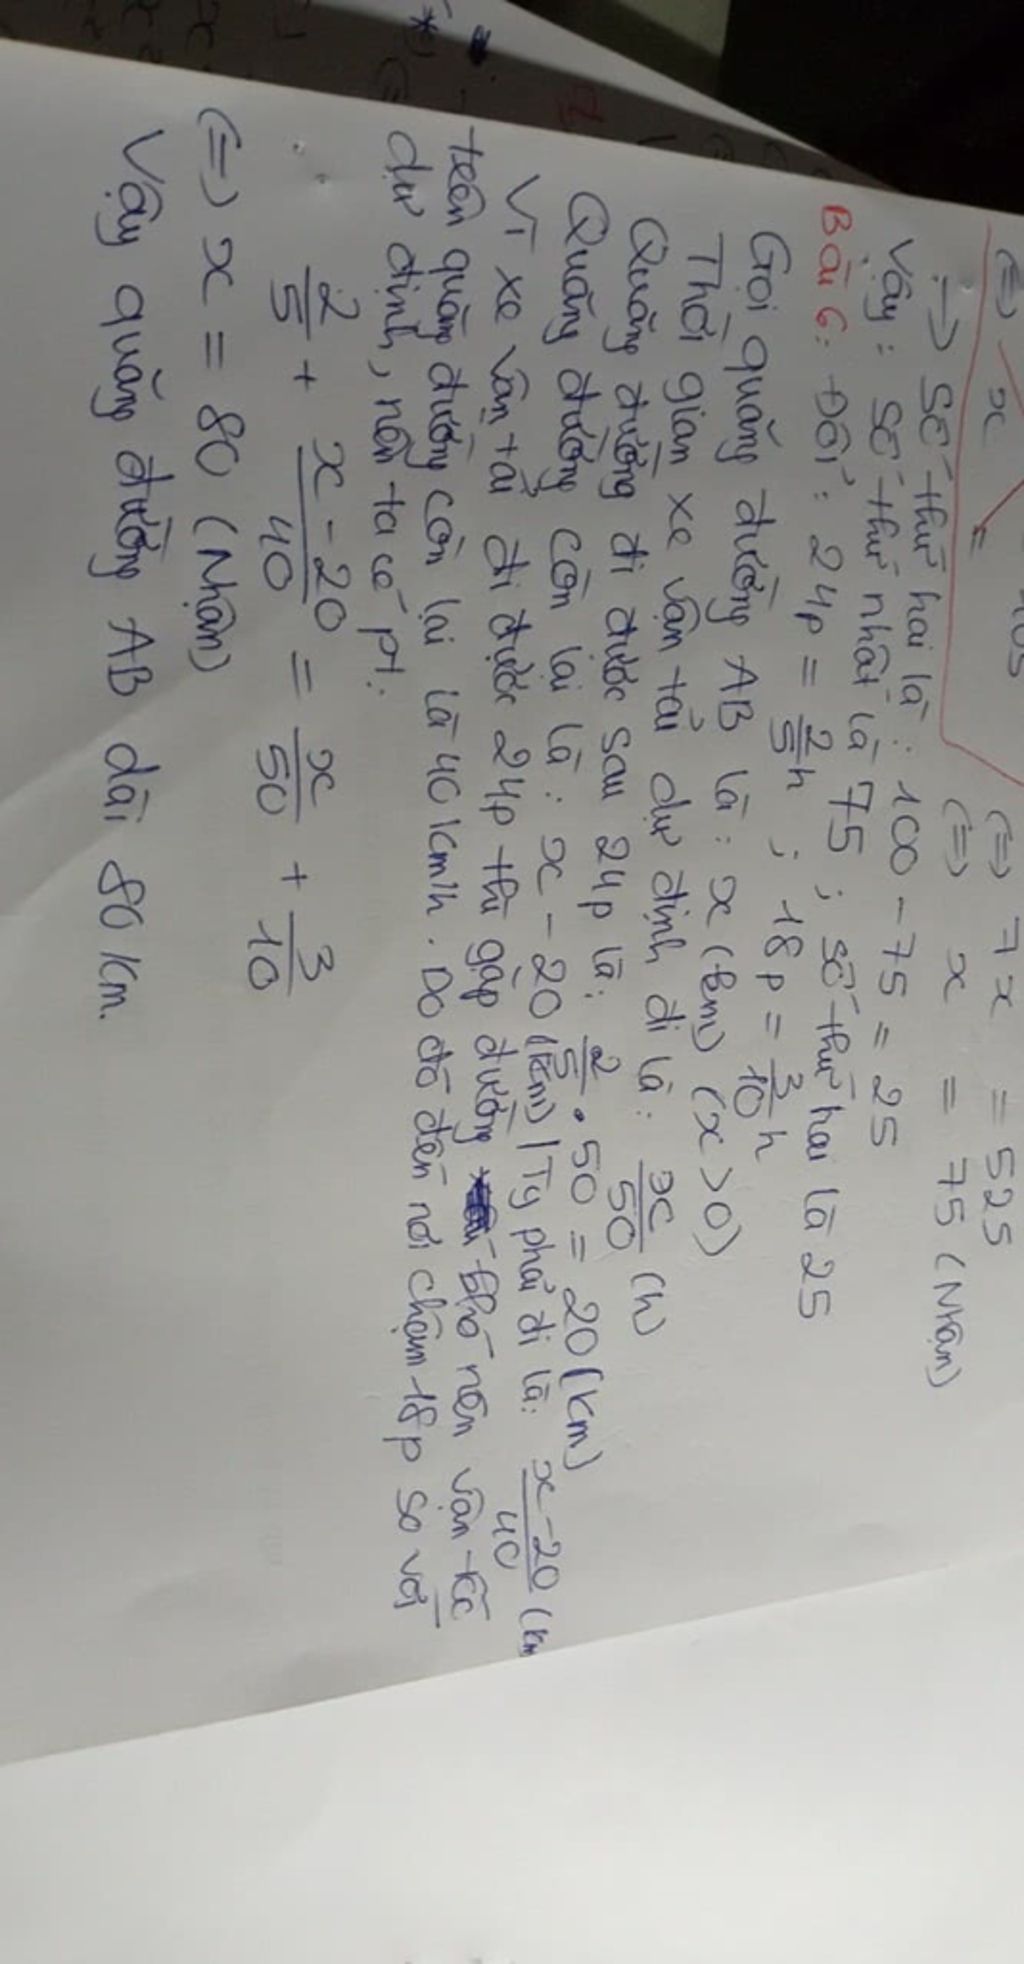 (=) 7x = 525
(=) x = 75 (Nhận)
(=) x =
→ Số thứ hai là: 100 - 75 = 25
Vậy: số thứ nhất là 75; số thứ hai là 25
Bài 6: Đổi: 24p = 2/5 h ; 18p = 3/10 h
Gọi quãng đường AB là: x (km) (x > 0)
Thời gian xe vận tải dự định đi là: x/50 (h)
Quãng đường đi được sau 24p là: 2/5 . 50 = 20 (km)
Quãng đường còn lại là: x - 20 (km) | Tg phải đi là: x - 20/40 (km
Vì xe vận tải đi được 24p thì gặp đường khó nên vận tốc
trên quãng đường còn lại là 40 km/h. Do đó đến nơi chậm 18p so với
dự định, nên ta có pt:
2/5 + x - 20/40 = x/50 + 3/10
(=) x = 80 (Nhận)
Vậy quãng đường AB dài 80 km.